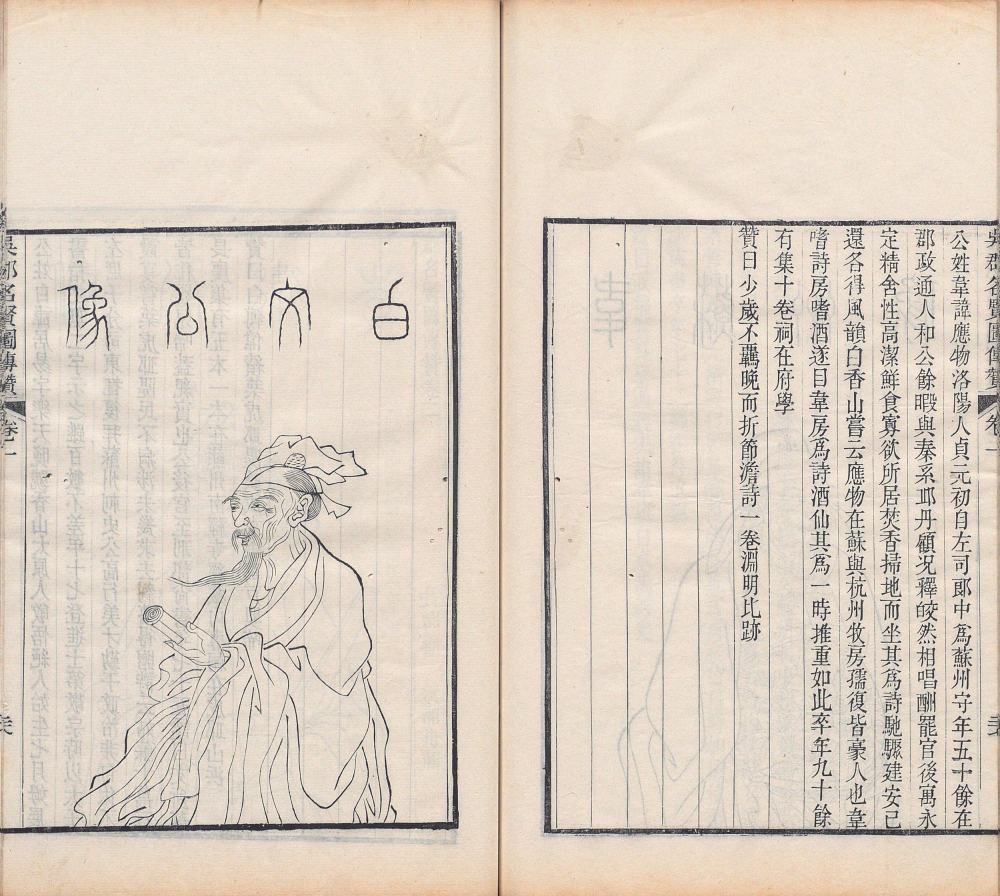 吳郡名賢圖傳贊 卷一
公姓韋諱應物洛陽人貞元初自左司郎中爲蘇州守年五十餘在
郡政通人和公餘暇與秦系邱丹顧況釋皎然相唱酬罷官後寓永
定精舍性高潔鮮食寡欲所居焚香掃地而坐其爲詩馳驟建安已
還各得風韻白香山嘗云應物在蘇與杭州牧房孺復皆豪人也韋
嗜詩房嗜酒遂目韋房爲詩酒仙其爲一時推重如此卒年九十餘
有集十卷祠在府學
贊曰少歲不羈晚而折節澹詩一卷淵明比跡
白文公像
吳郡名賢圖傳贊 卷一